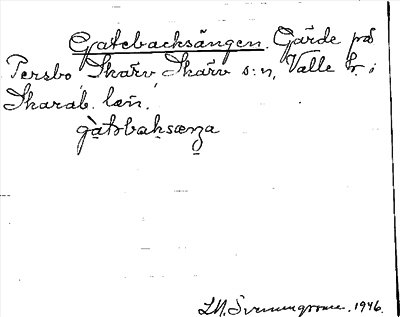 Gatebacksängen. Gärde på
Persbo, Skärv, Skärv s:n, Valle h. i
Skarab. län.
gàtəbaksæŋa
1946.